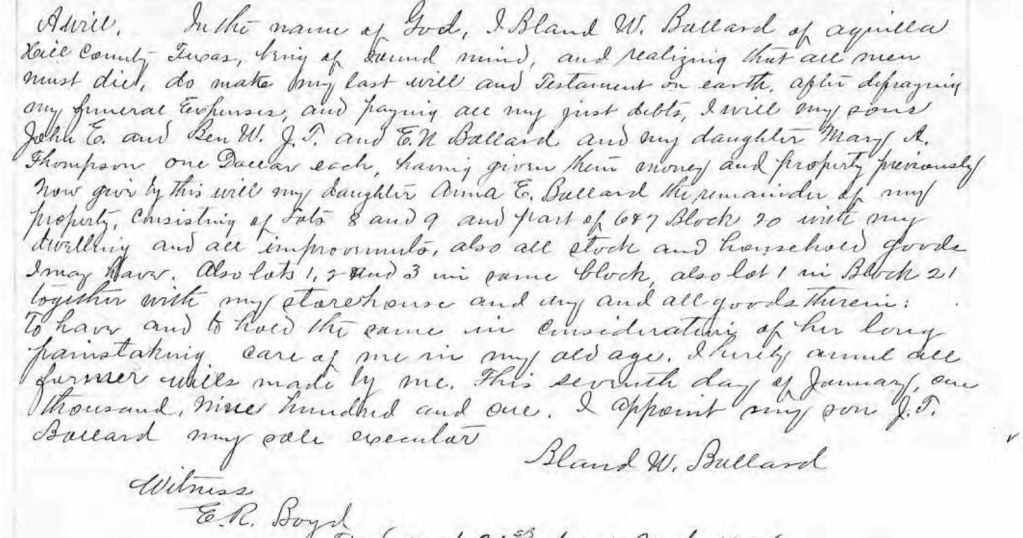 A will. In the name of God, I Bland W. Ballard of aquilla
Hill County Texas, being of sound mind, and realizing that all men
must die, do make my last will and Testament on earth, after defraying
my funeral Expenses, and paying all my just debts, I will my sons
John E. and Ben W. J. T. and E. N Ballard and my daughter Mary A.
Thompson one Dollar each, having given them money and property previously
Now give by this will my daughter Anna E. Ballard the remainder of my
property, Consisting of Lots 8 and 9 and part of 6 & 7 Block 20 with my
dwelling and all improvements, also all stock and household goods
I may have. Also lots 1, 2 and 3 in same block, also lot 1 in Block 21
together with my storehouse and any and all goods therein:
To have and to hold the same in consideration of her long
painstaking care of me in my old age. I hereby annul all
former wills made by me. This seventh day of January, one
thousand, nine hundred and one. I appoint my son J. T.
Ballard my sole executor
Bland W. Ballard
Witness
E. R. Boyd